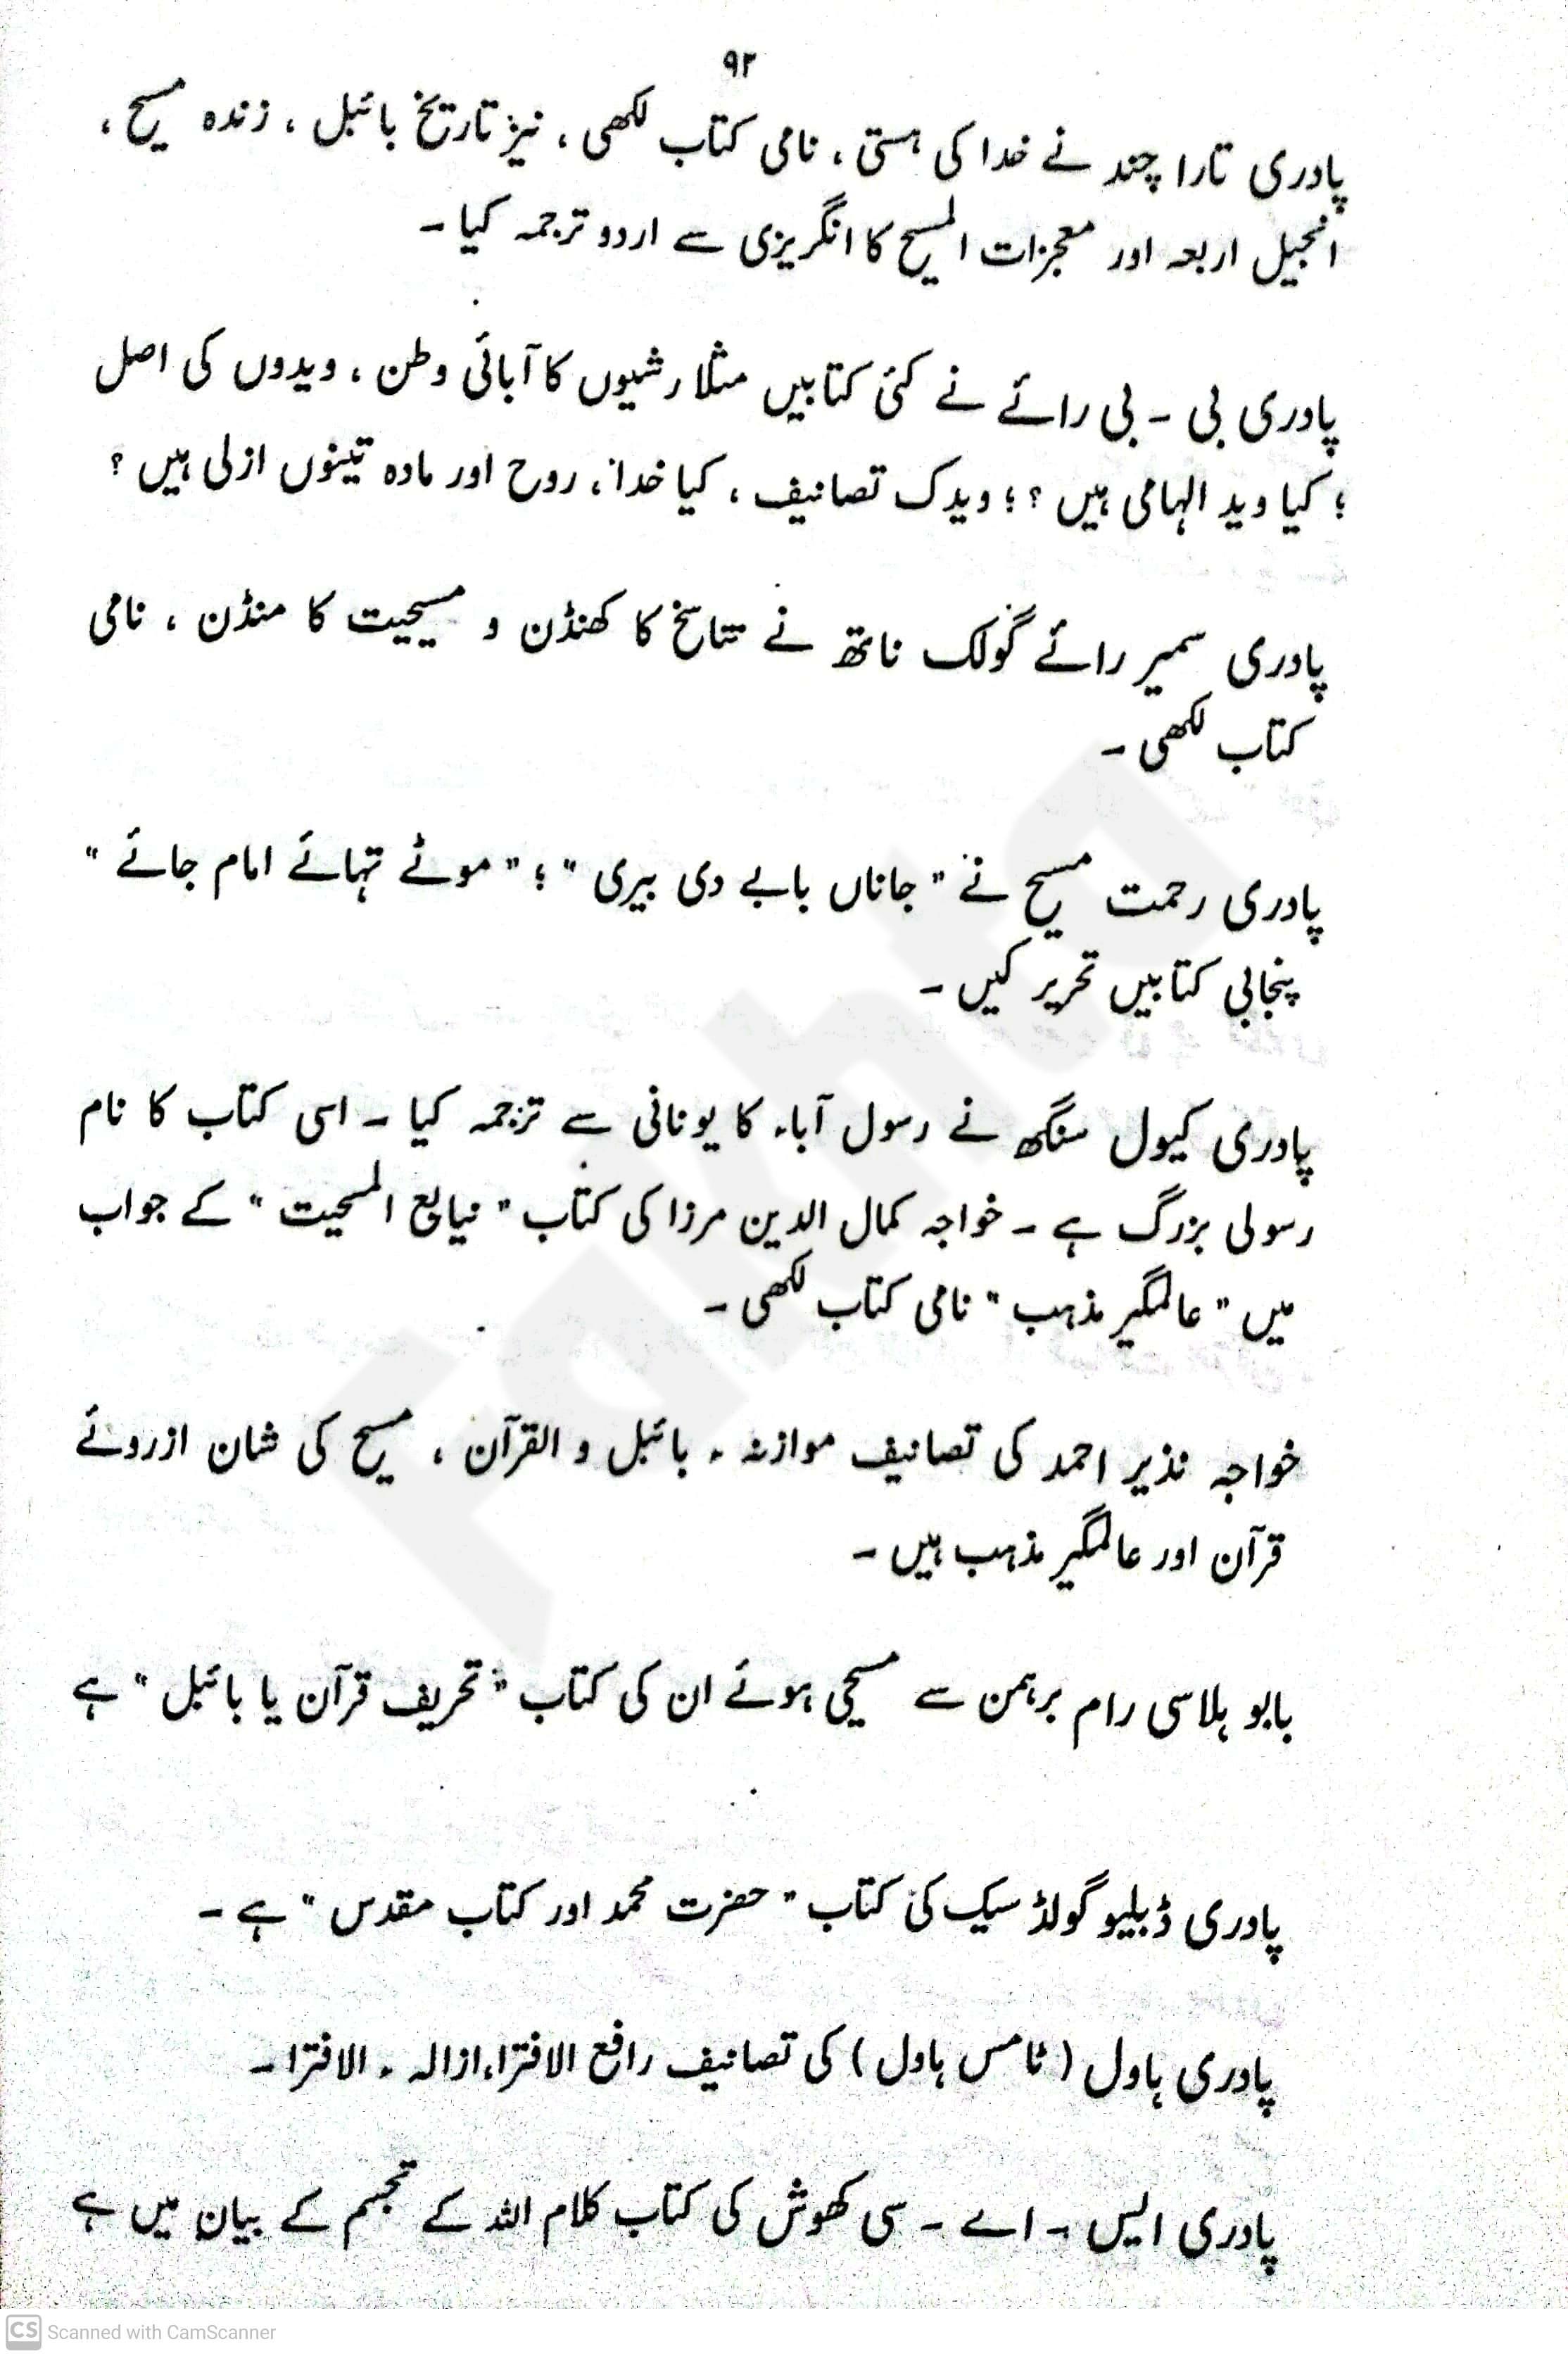 ۹۲
پادری تارا چند نے خدا کی ہستی ، نامی کتاب لکھی ، نیز تاریخ بائبل ، زندہ مسیح ،
انجیل اربعہ اور معجزات المسیح کا انگریزی سے اردو ترجمہ کیا ۔
پادری بی ۔ بی رائے نے کئی کتابیں مثلا رشیوں کا آبائی وطن ، ویدوں کی اصل
؛ کیا وید الہامی ہیں ؟ ؛ ویدک تصانیف ، کیا خدا ، روح اور مادہ تینوں ازلی ہیں ؟
پادری سمیر رائے گولک ناتھ نے تناسخ کا کھنڈن و مسیحیت کا منڈن ، نامی
کتاب لکھی ۔
پادری رحمت مسیح نے " جاناں بابے دی بیری " ؛ " موٹے تہائے امام جائے "
پنجابی کتابیں تحریر کیں ۔
پادری کیول سنگھ نے رسول آباء کا یونانی سے ترجمہ کیا ۔ اسی کتاب کا نام
رسولی بزرگ ہے ۔ خواجہ کمال الدین مرزا کی کتاب " نیابیع المسحیت " کے جواب
میں " عالمگیر مذہب " نامی کتاب لکھی ۔
خواجہ نذیر احمد کی تصانیف موازنہ ء بائبل و القرآن ، مسیح کی شان ازروئے
قرآن اور عالمگیر مذہب ہیں ۔
بابو ہلاسی رام برہمن سے مسیحی ہوئے ان کی کتاب " تحریف قرآن یا بائبل " ہے
پادری ڈبلیو گولڈ سیک کی کتاب " حضرت محمد اور کتاب مقدس " ہے ۔
پادری ہاول ( ٹامس ہاول ) کی تصانیف رافع الافترا،ازالہ ء الافترا ۔
پادری ایس ۔ اے ۔ سی کھوش کی کتاب کلام اللہ کے تجسم کے بیان میں ہے
CS Scanned with CamScanner